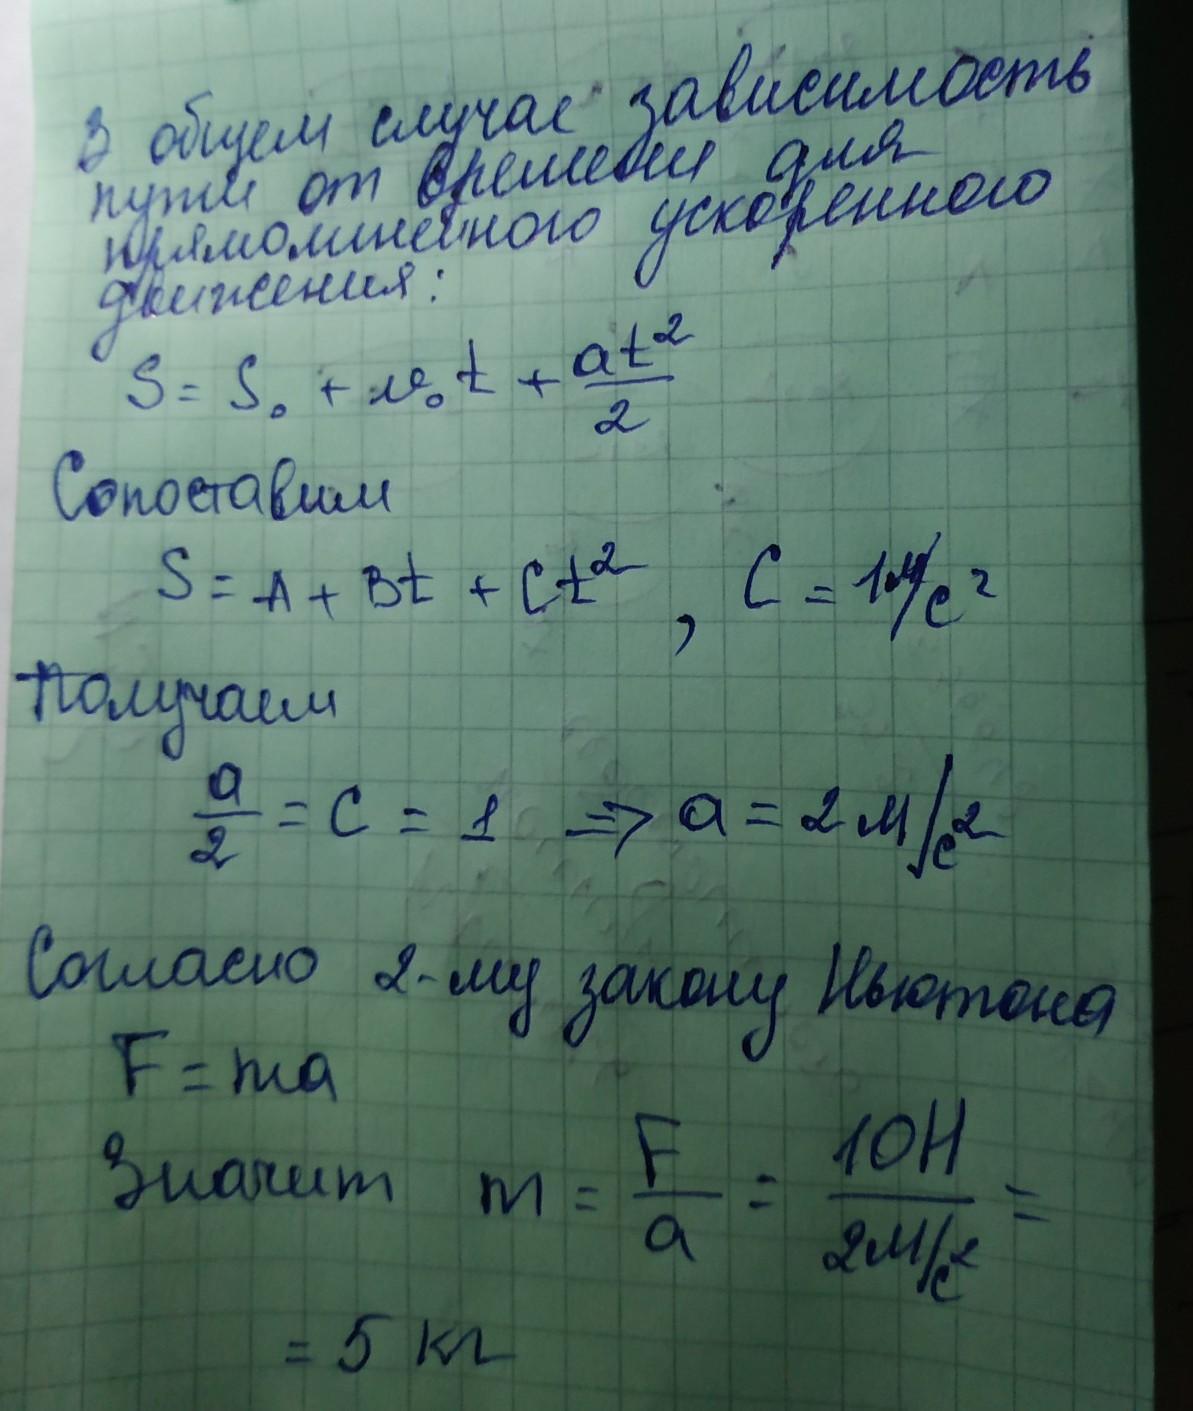 В общем случае зависимость
пути от времени для
прямолинейного ускоренного
движения:
S = S₀ + v₀t + at²/2
Сопоставим
S = A + Bt + Ct², C = 1м/с²
Получаем
a/2 = C = 1 => a = 2 м/с²
Согласно 2-му закону Ньютона
F = ma
Значит m = F/a = 10Н/2м/с² =
= 5 кг